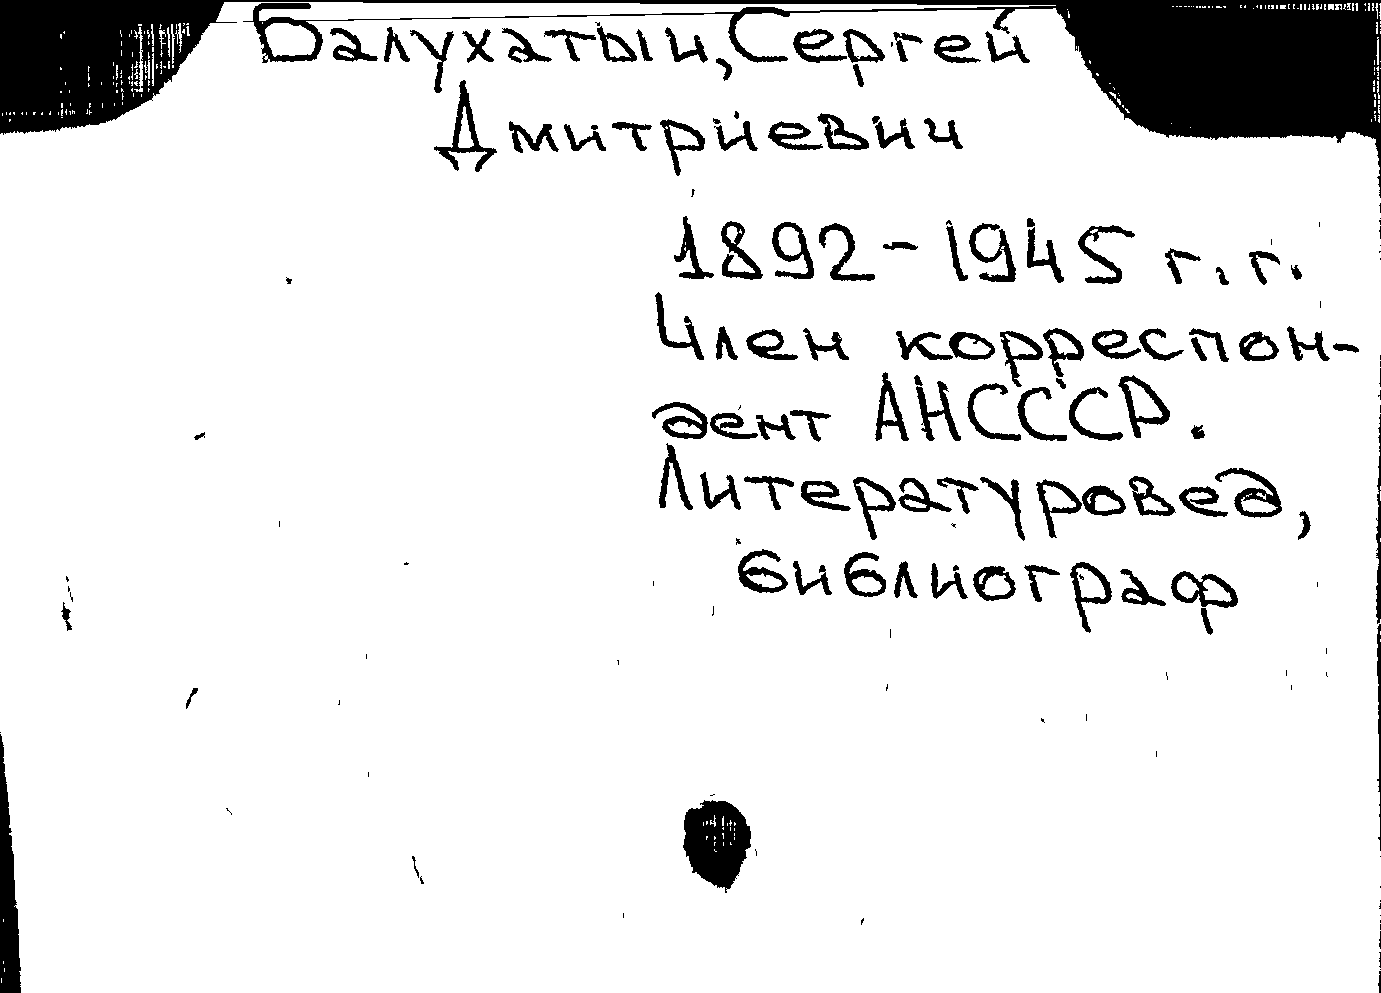 Балухатый, Сергей
Дмитриевич
1892-1945 г. г.
Член корреспон-
дент АНСССР.
Литературовед,
библиограф